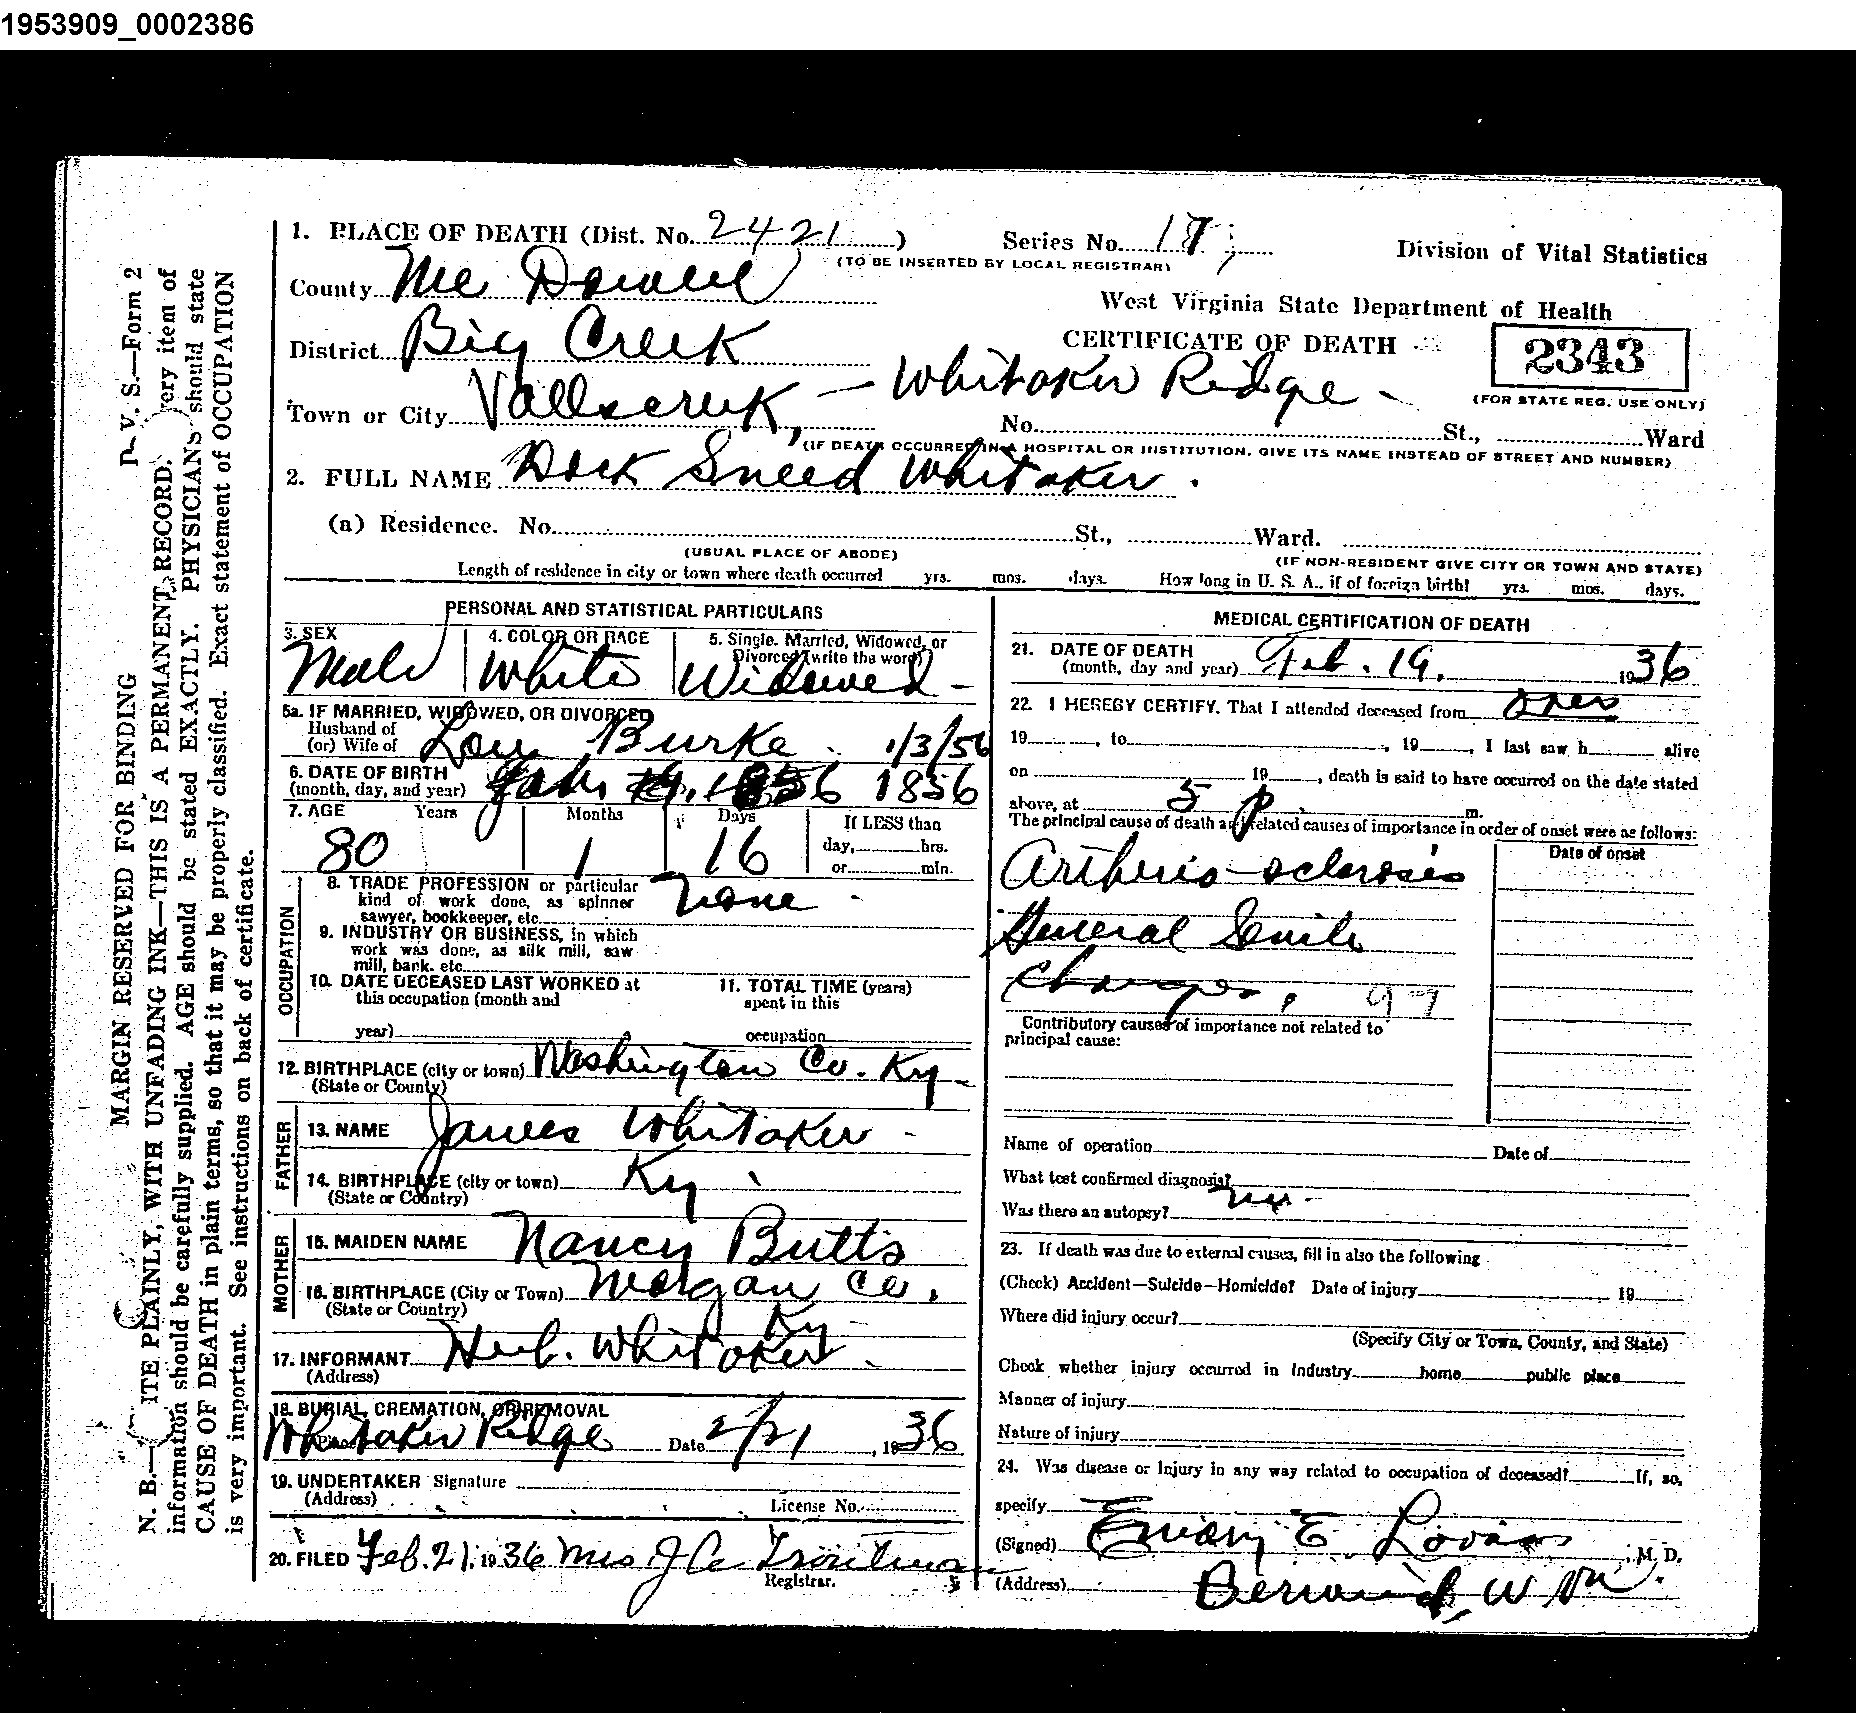 1953909_0002386
1. PLACE OF DEATH (Dist. No. 2421 ) Series No. 17 Division of Vital Statistics
(TO BE INSERTED BY LOCAL REGISTRAR)
County Mc Dowell
West Virginia State Department of Health
CERTIFICATE OF DEATH
2343
(FOR STATE REG. USE ONLY)
District Big Creek
Town or City Vallscreek, - Whitaker Ridge -
No. St., Ward
(IF DEATH OCCURRED IN A HOSPITAL OR INSTITUTION, GIVE ITS NAME INSTEAD OF STREET AND NUMBER)
2. FULL NAME Dock Sneed Whitaker.
(a) Residence. No. St., Ward.
(USUAL PLACE OF ABODE) (IF NON-RESIDENT GIVE CITY OR TOWN AND STATE)
Length of residence in city or town where death occurred yrs. mos. days. How long in U. S. A., if of foreign birth? yrs. mos. days.
PERSONAL AND STATISTICAL PARTICULARS
3. SEX Male
4. COLOR OR RACE White
5. Single, Married, Widowed, or
Divorced (write the word)
Widowed -
5a. IF MARRIED, WIDOWED, OR DIVORCED
Husband of
(or) Wife of Lou Burke. 1/3/56
6. DATE OF BIRTH
(month, day, and year) Jan. 1856 1856
7. AGE Years Months Days If LESS than
80 1 16 day, hrs.
or min.
OCCUPATION
8. TRADE PROFESSION or particular
kind of work done, as spinner
sawyer, bookkeeper, etc. None -
9. INDUSTRY OR BUSINESS, in which
work was done, as silk mill, saw
mill, bank. etc.
10. DATE DECEASED LAST WORKED at
this occupation (month and
year)
11. TOTAL TIME (years)
spent in this
occupation
12. BIRTHPLACE (city or town) Washington Co. Ky -
(State or County)
FATHER
13. NAME James Whitaker -
14. BIRTHPLACE (city or town) Ky
(State or Country)
MOTHER
15. MAIDEN NAME Nancy Butts
16. BIRTHPLACE (City or Town) Morgan Co,
(State or Country) Ky
17. INFORMANT Herb. Whitaker -
(Address)
18. BURIAL, CREMATION, OR REMOVAL
Whitaker Ridge Date 2/21, 1936
19. UNDERTAKER Signature
(Address) License No.
20. FILED Feb. 21. 1936 Mrs J C Troutman
Registrar.
MEDICAL CERTIFICATION OF DEATH
21. DATE OF DEATH
(month, day and year) Feb. 19, 1936
22. I HEREBY CERTIFY, That I attended deceased from
19 , to , 19 , I last saw h alive
on 19 , death is said to have occurred on the date stated
above, at 5 P. m.
The principal cause of death and related causes of importance in order of onset were as follows:
Date of onset
Artherio-sclerosis
General Senile
Changes, 97
Contributory causes of importance not related to
principal cause:
Name of operation Date of
What test confirmed diagnosis?
Was there an autopsy? no -
23. If death was due to external causes, fill in also the following
(Check) Accident—Suicide—Homicide? Date of injury 19
Where did injury occur?
(Specify City or Town, County, and State)
Check whether injury occurred in Industry home public place
Manner of injury
Nature of injury
24. Was disease or Injury in any way related to occupation of deceased? If, so,
specify
(Signed) Emory E. Lovas, M. D.
(Address) Berwind, W Va.
D. V. S.—Form 2
MARGIN RESERVED FOR BINDING
N. B.— ITE PLAINLY, WITH UNFADING INK—THIS IS A PERMANENT RECORD. very item of
information should be carefully supplied. AGE should be stated EXACTLY. PHYSICIANS should state
CAUSE OF DEATH in plain terms, so that it may be properly classified. Exact statement of OCCUPATION
is very important. See instructions on back of certificate.